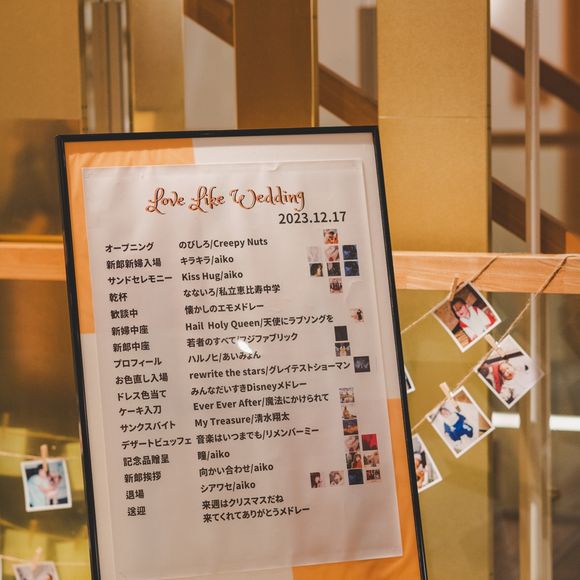 Love Like Wedding
2023.12.17
オープニング のびしろ/Creepy Nuts
新郎新婦入場 キラキラ/aiko
サンドセレモニー Kiss Hug/aiko
乾杯 なないろ/私立恵比寿中学
歓談中 懐かしのエモメドレー
新婦中座 Hail Holy Queen/天使にラブソングを
新郎中座 若者のすべて/フジファブリック
プロフィール ハルノヒ/あいみょん
お色直し入場 rewrite the stars/グレイテストショーマン
ドレス色当て みんなだいすきDisneyメドレー
ケーキ入刀 Ever Ever After/魔法にかけられて
サンクスバイト My Treasure/清水翔太
デザートビュッフェ 音楽はいつまでも/リメンバーミー
記念品贈呈 瞳/aiko
新郎挨拶 向かい合わせ/aiko
退場 シアワセ/aiko
送迎 来週はクリスマスだね
来てくれてありがとうメドレー